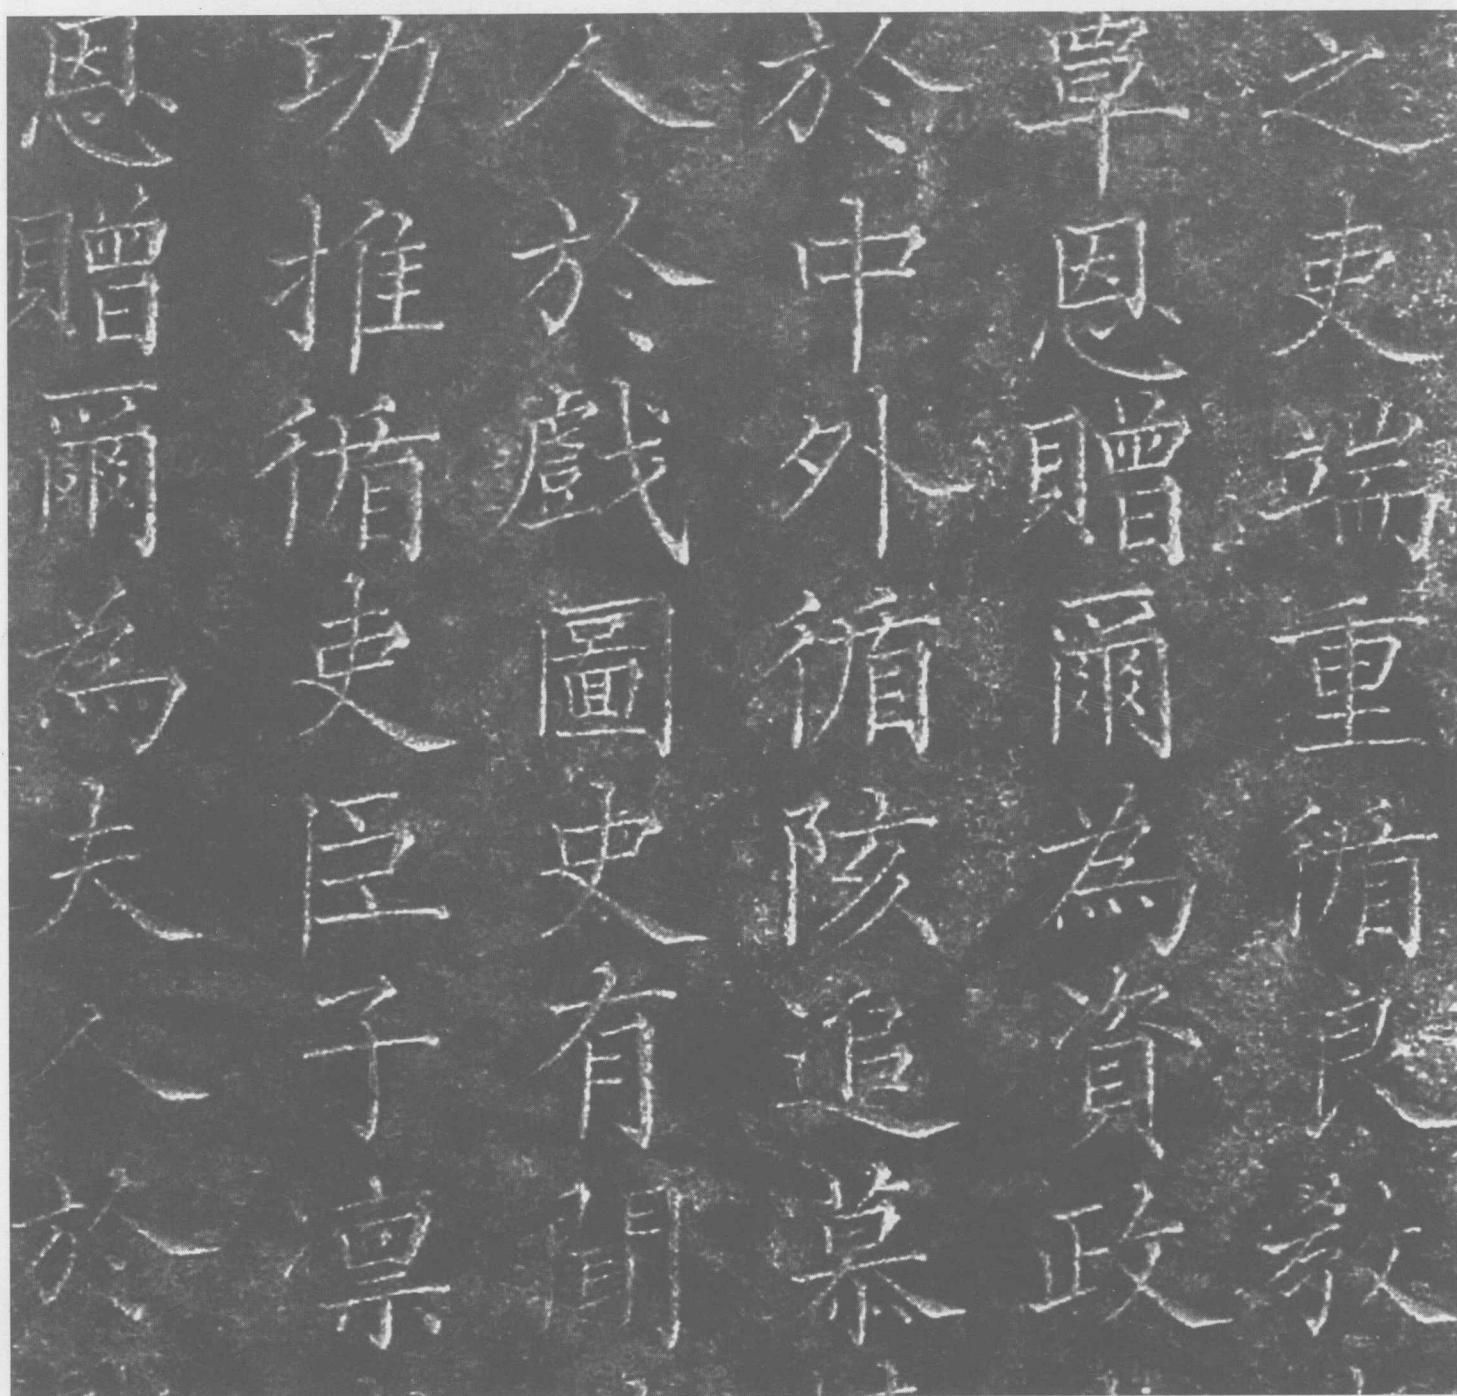 之吏端重循良教
覃恩贈爾為資政
於中外循陔追慕
人於戲圖史有
功推循吏臣子凛
恩贈爾為夫人於